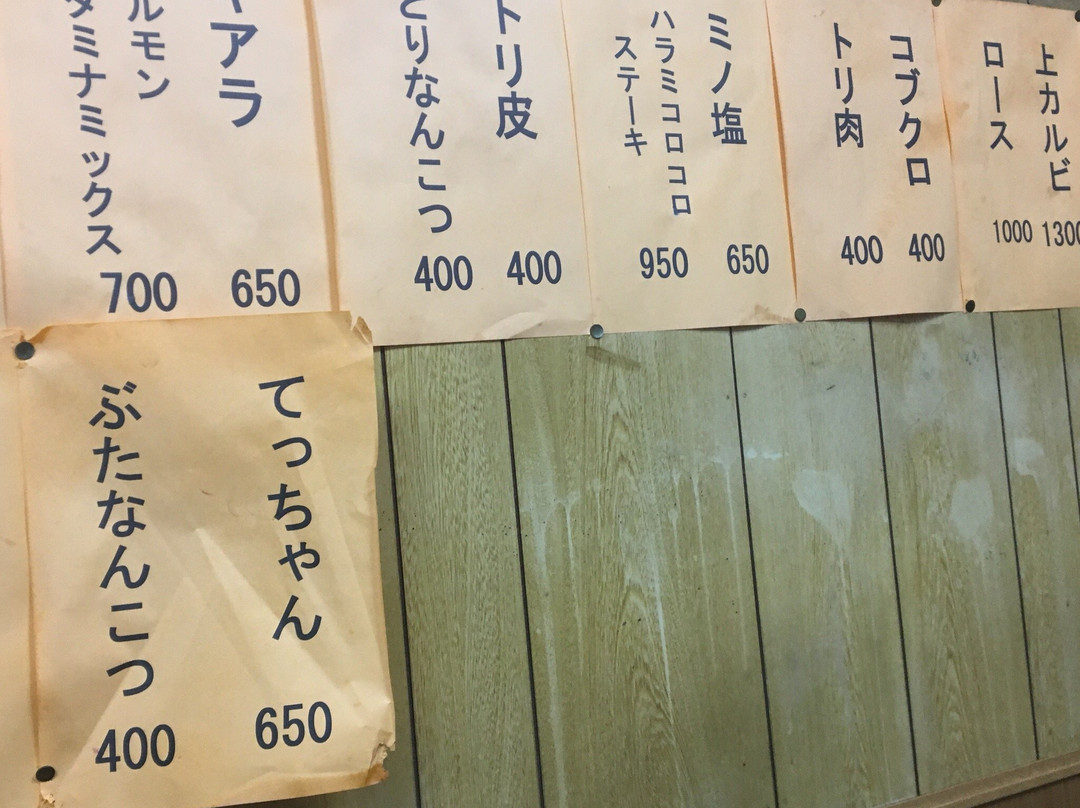 上カルビ
1300
ロース
1000
コブクロ
400
トリ肉
400
ミノ塩
650
ハラミコロコロ
ステーキ
950
トリ皮
400
とりなんこつ
400
アラ
650
ルモン
タミナミックス
700
てっちゃん
650
ぶたなんこつ
400